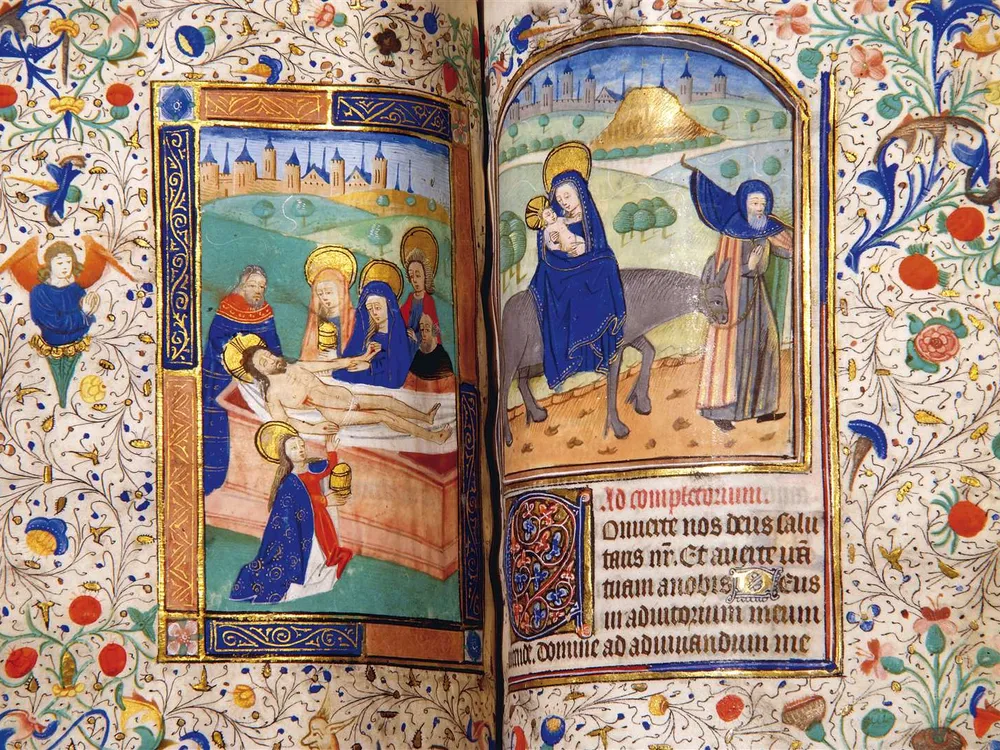 Ad completorium.
COnuerte nos deus salu
taris nr̄. Et auerte irā
tuam a nobis DEus
in adiutorium meum
tende. Domine ad adiuuandum me